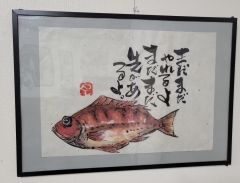 まだまだ
やれるよ
まだまだ
先があ
るよ。